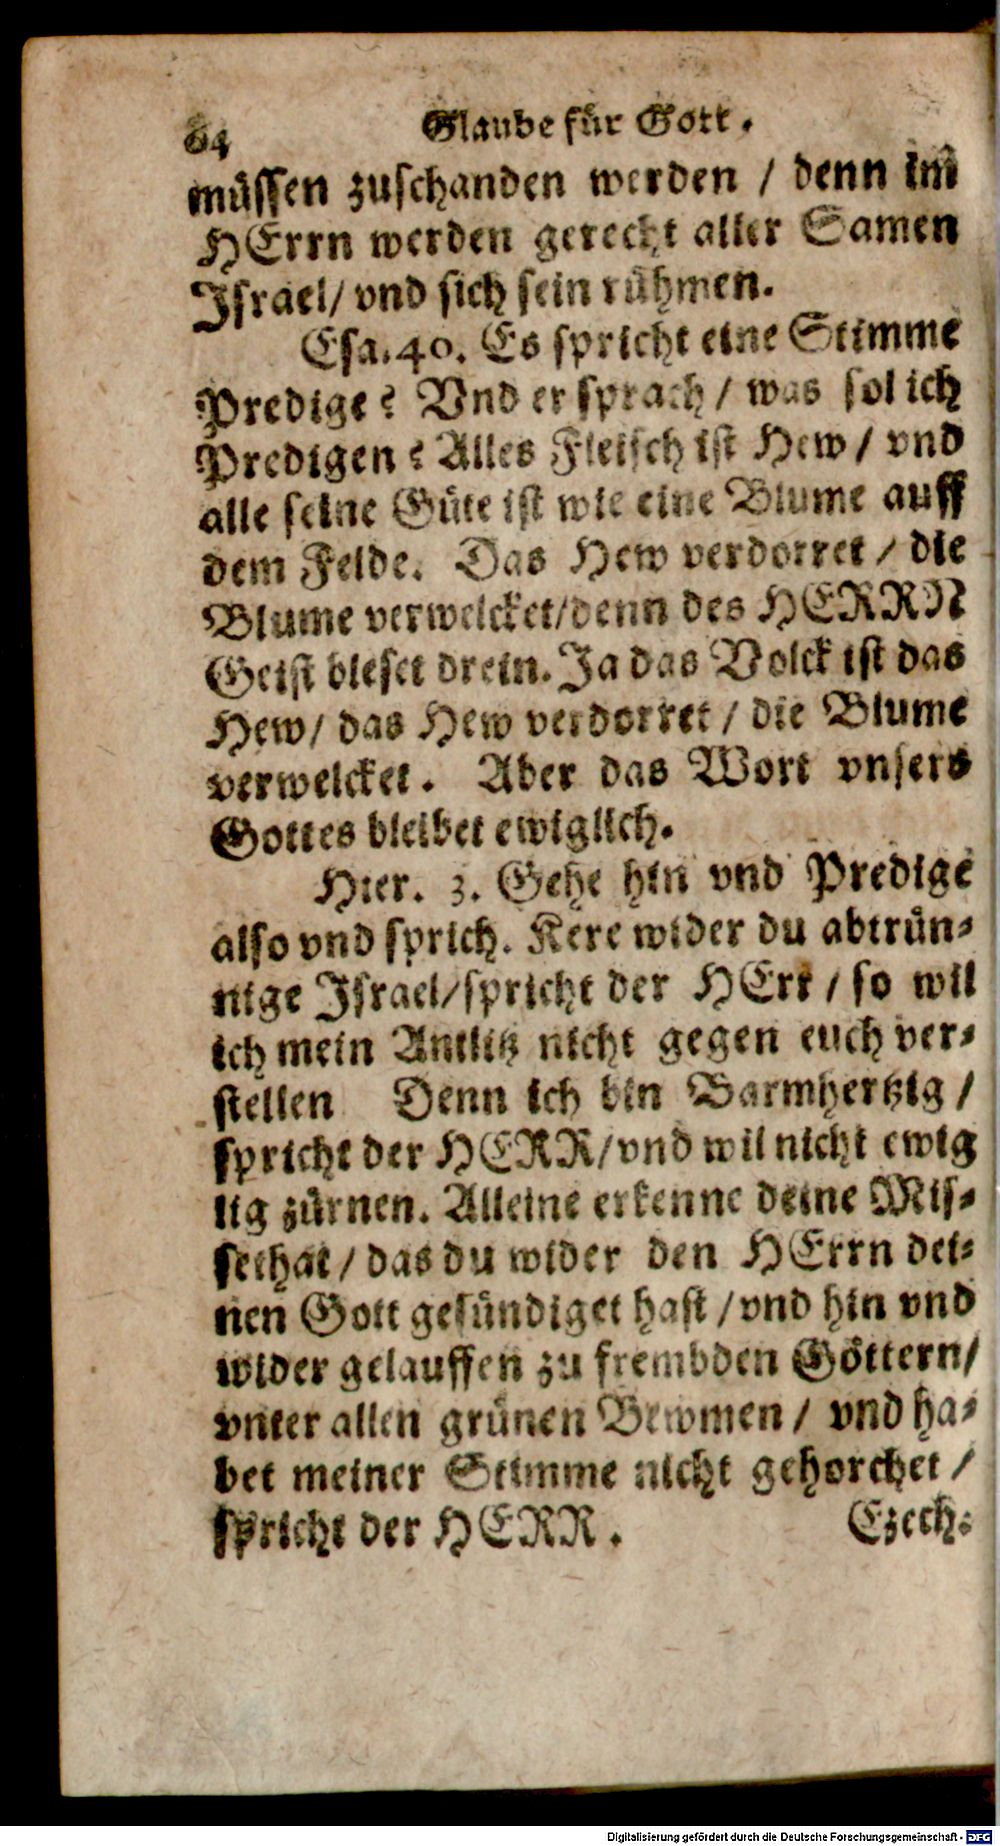 64 Glaube für Gott.
müssen zuschanden werden / denn im
HErrn werden gerecht aller Samen
Israel/ vnd sich sein rühmen.
Esa. 40. Es spricht eine Stimme
Predige? Vnd er sprach / was sol ich
Predigen? Alles Fleisch ist Hew / vnd
alle seine Güte ist wie eine Blume auff
dem Felde. Das Hew verdorret / die
Blume verwelcket/denn des HERRN
Geist bleset drein. Ja das Volck ist das
Hew/ das Hew verdorret / die Blume
verwelcket. Aber das Wort vnsers
Gottes bleibet ewiglich.
Hier. 3. Gehe hin vnd Predige
also vnd sprich. Kere wider du abtrün-
nige Israel/spricht der HErr / so wil
ich mein Antlitz nicht gegen euch ver-
stellen Denn ich bin Barmhertzig /
spricht der HERR/vnd wil nicht ewig
lig zürnen. Alleine erkenne deine Mis-
sethat / das du wider den HErrn dei-
nen Gott gesündiget hast / vnd hin vnd
wider gelauffen zu frembden Göttern/
vnter allen grünen Bewmen / vnd ha-
bet meiner Stimme nicht gehorchet /
spricht der HERR.
Ezech.
Digitalisierung gefördert durch die Deutsche Forschungsgemeinschaft - DFG